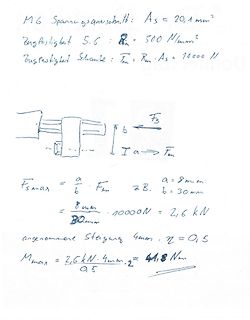 M6 Spannungsquerschnitt: As = 20,1 mm²
Zugfestigkeit 5.6 : Rm = 500 N/mm²
Zugfestigkeit Schraube: Fm = Rm · As = 10000 N
b
F3
I a → Fm
Fs max = a/b · Fm z.B. a = 8 mm
b = 30 mm
= 8 mm/30 mm · 10000 N = 2,6 kN
angenommene Steigung 4mm, η = 0,5
Mmax = 2,6 kN · 4mm/0,5 · 2 = 41,8 Nm